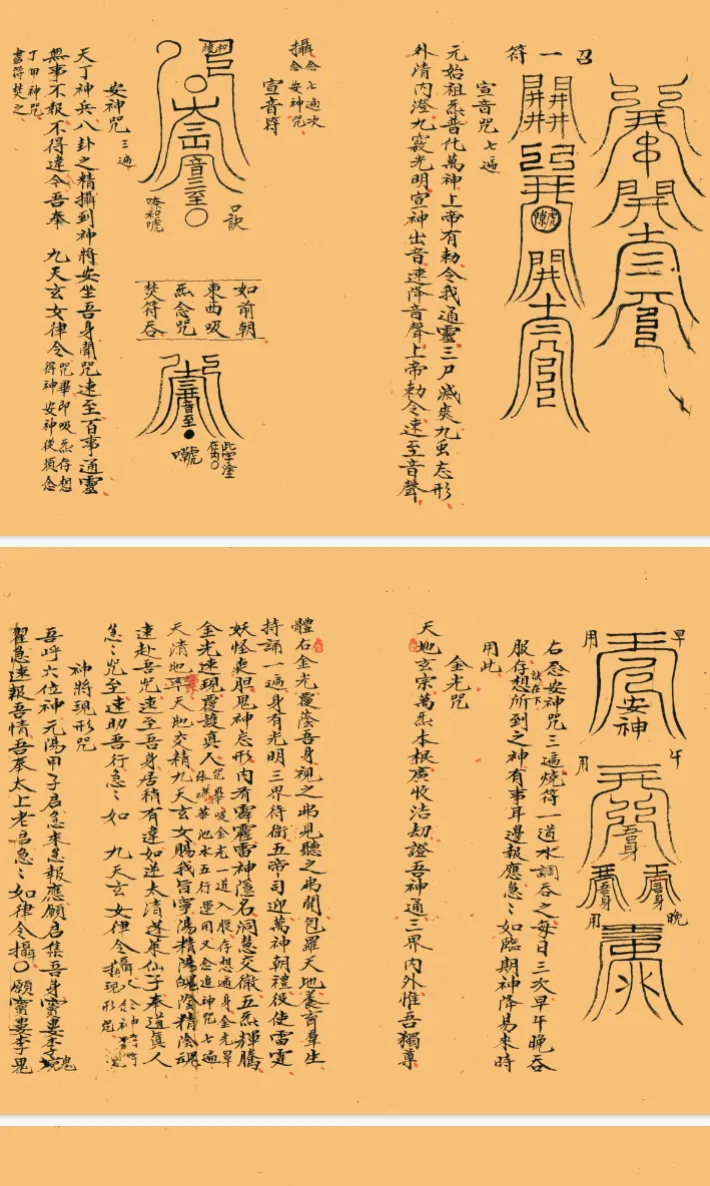 召一符
宣音咒 七遍
元始祖炁普化萬神上帝有勅令我通靈三尸滅爽九虫忘形
外清内澄九竅光明宣神出音速降音聲上帝勅令速至音聲
攝念七遍次
念安神咒
宣音符
口訣
如前朝
東西吸
炁念咒
焚符吞
安神咒 三遍
天丁神兵八卦之精攝到神將安坐吾身聞咒速至百事通靈
無事不報不得違令吾奉 九天玄女律令 咒畢即吸炁存想
得神安神從頂念
丁甲神咒
書符焚之
早
用
安神
午
用
吾身
吾身
吾身
晚
用
右念安神咒三遍燒符一道水調吞之每日三次早午晚吞
服存想所到之神有事耳邊報應急〻如臨期神降易來時
訣在下
用此
金光咒
天地玄宗萬炁本根廣收浩劫證吾神通三界内外惟吾獨尊
體右金光覆蔭吾身視之弗見聽之弗聞包羅天地養育羣生
持誦一遍身有光明三界待衛五帝司迎萬神朝禮役使雷霆
妖怪喪胆鬼神忘形内有霹靂雷神隱名洞慧交徹五炁輝騰
金光速現覆護真人 咒畢吸金光一道入服存想遍身金光罩
華池水五行運用又念追神咒七遍
天清地 天地交精九天玄女賜我旨寧陽精陽魄陰精陰魂
速赴吾咒速至吾身居稍有違如逆太清蓬萊仙子奉道真人
急〻咒字速助吾行急〻如 九天玄女律令攝
現形咒
神將現形咒
吾呼六位神元陽甲子 急來急報應願 集吾身
急速報吾情吾奉太上老君急〻如律令攝〇願